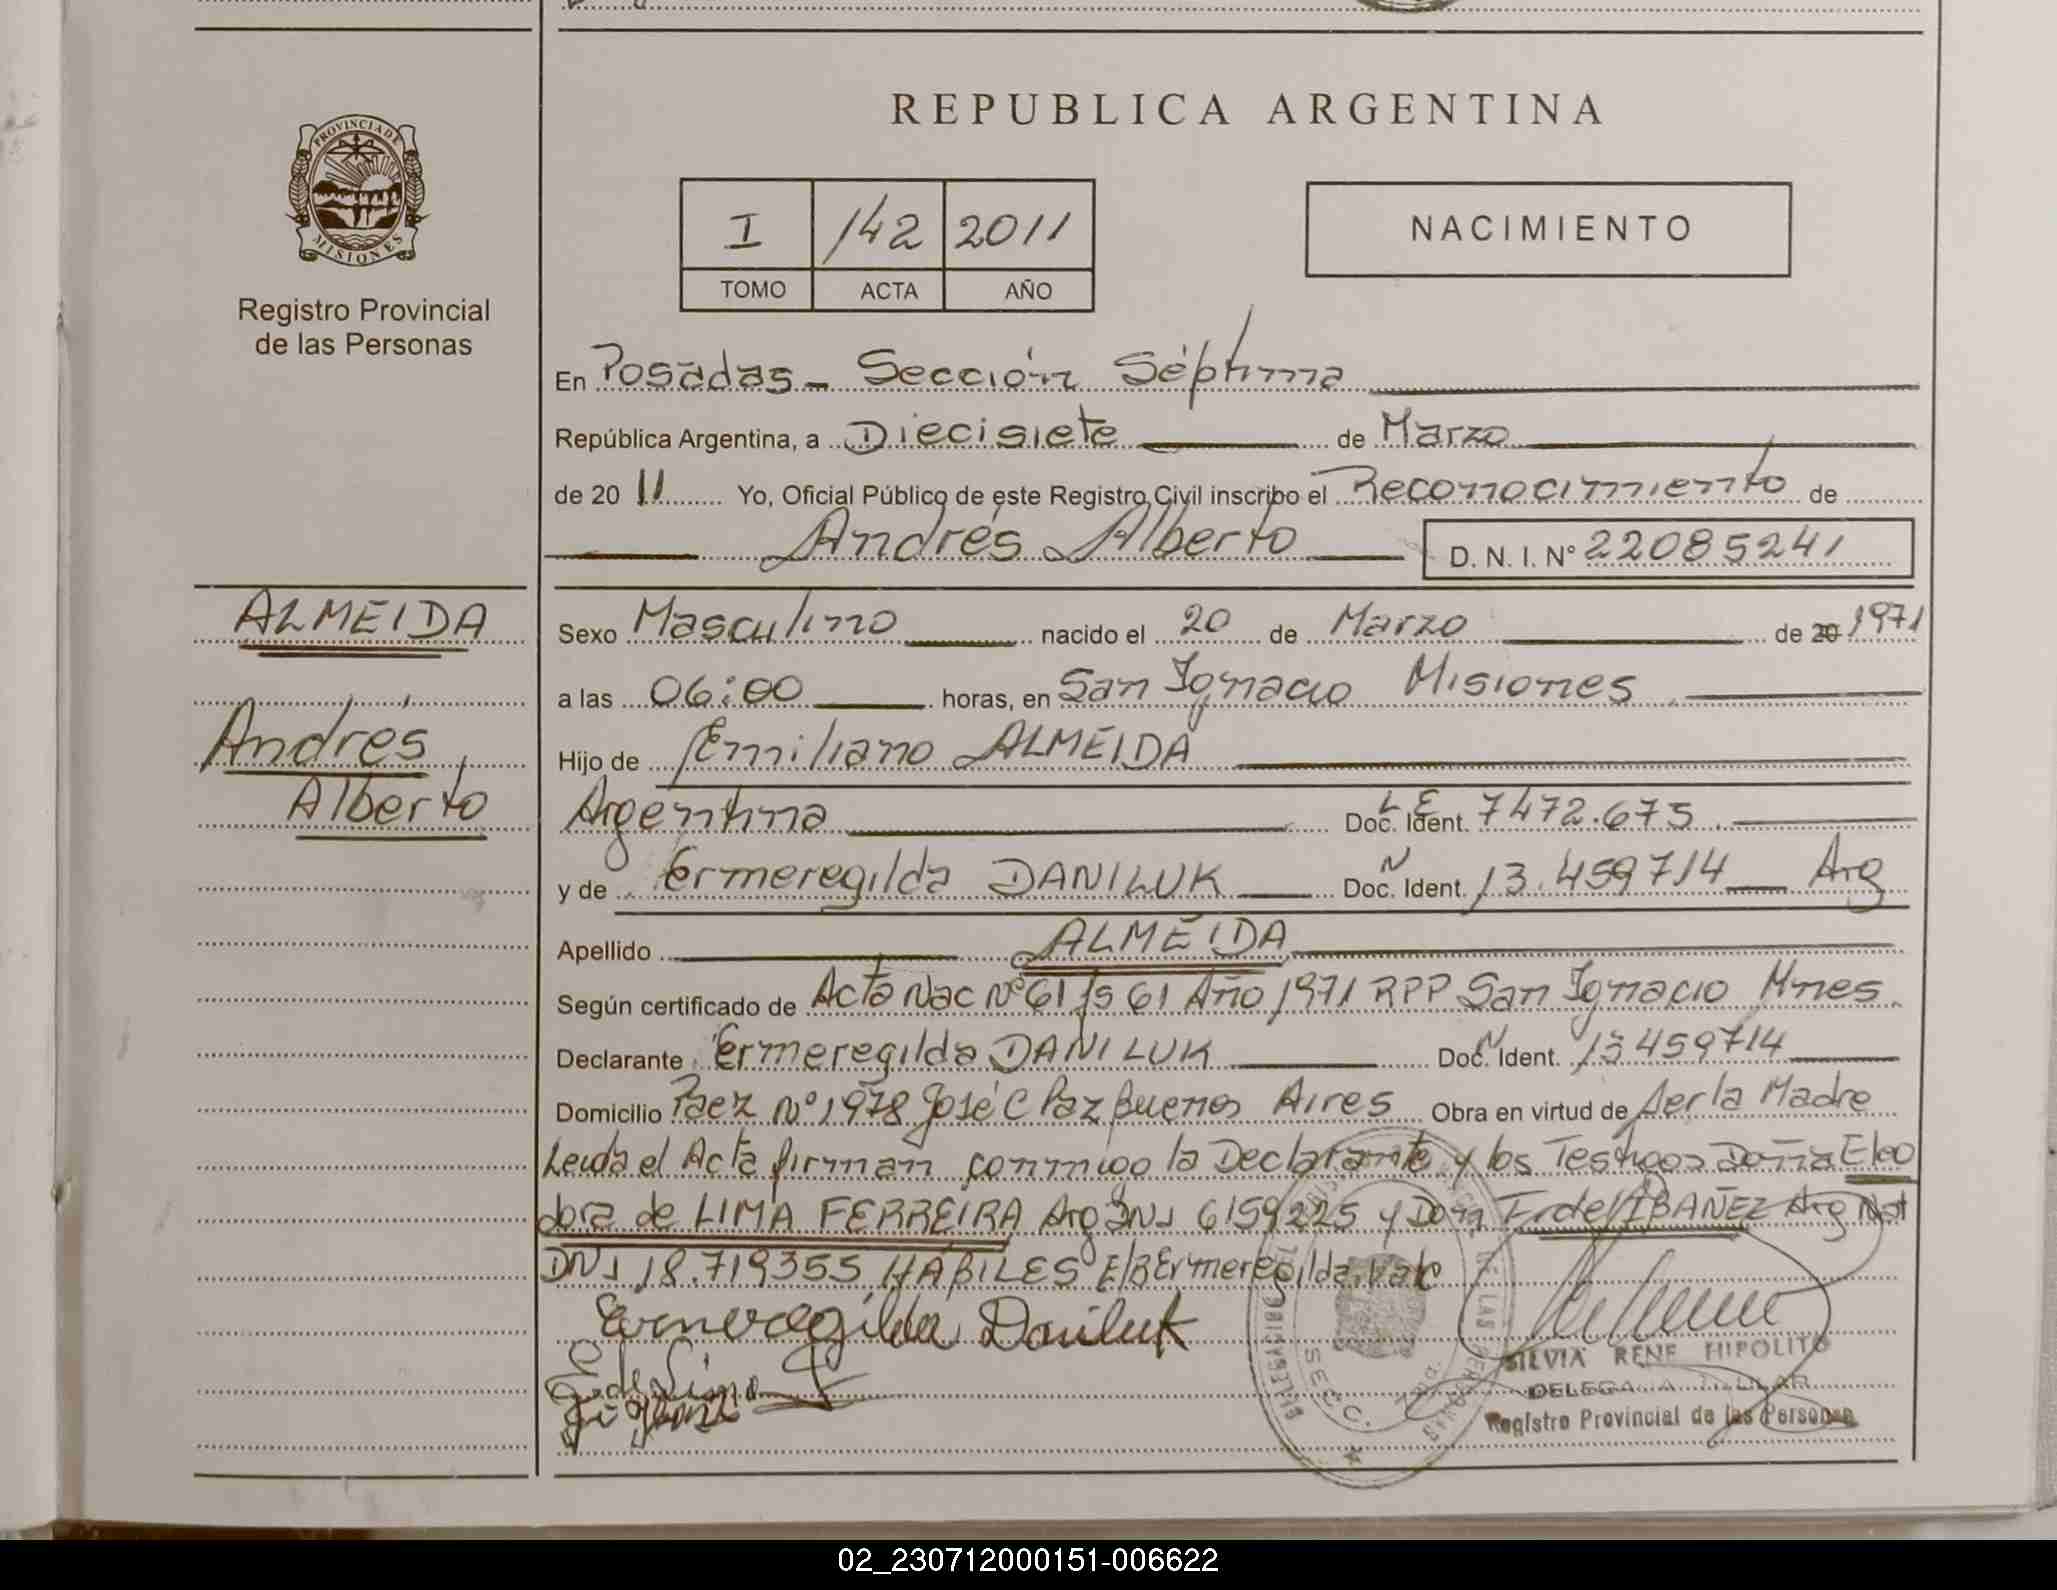 REPUBLICA ARGENTINA
PROVINCIA DE
MISIONES
Registro Provincial
de las Personas
I 142 2011
TOMO ACTA AÑO
NACIMIENTO
En Posadas - Sección Séptima
República Argentina, a Diecisiete de Marzo
de 20 11 Yo, Oficial Público de este Registro Civil inscribo el Reconocimiento de
Andrés Alberto D. N. I. N° 22085241
ALMEIDA
Andrés
Alberto
Sexo Masculino nacido el 20 de Marzo de 20 1971
a las 06:00 horas, en San Ignacio Misiones
Hijo de Emiliano ALMEIDA
Argentina Doc. Ident. L E 7472.675
y de Ermeregilda DANILUK Doc. Ident. N 13.459714 Arg
Apellido ALMEIDA
Según certificado de Acta Nac Nº 61 fs 61 Año 1971 RPP San Ignacio Mnes
Declarante Ermeregilda DANILUK Doc. Ident. N 13459714
Domicilio Paez Nº 1978 José C Paz Buenos Aires Obra en virtud de ser la Madre
Leida el Acta firman conmigo la Declarante y los Testigos Doña Eleo
dora de LIMA FERREIRA Arg DNI 6159225 y Don Fidel IBAÑEZ Arg Nat
DNI 18.719355 HÁBILES E/B Ermeregilda. vale
Ermeregilda Daniluk
E. de Lima
SECC.
SILVIA RENE HIPOLITO
DELEGADA TITULAR
Registro Provincial de las Personas
02_230712000151-006622